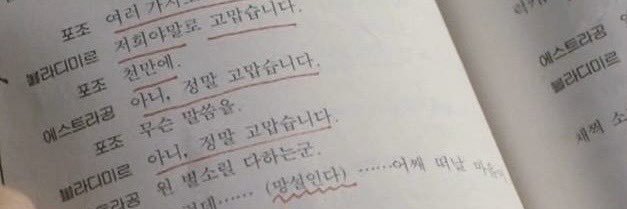 포조 여러 가지로
블라디미르 저희야말로 고맙습니다.
포조 천만에.
에스트라공 아니, 정말 고맙습니다.
포조 무슨 말씀을.
블라디미르 아니, 정말 고맙습니다.
에스트라공 원 별소릴 다하는군.
(망설인다) ……어째 떠날 마음이
에스트라공
블라디미르
새찍